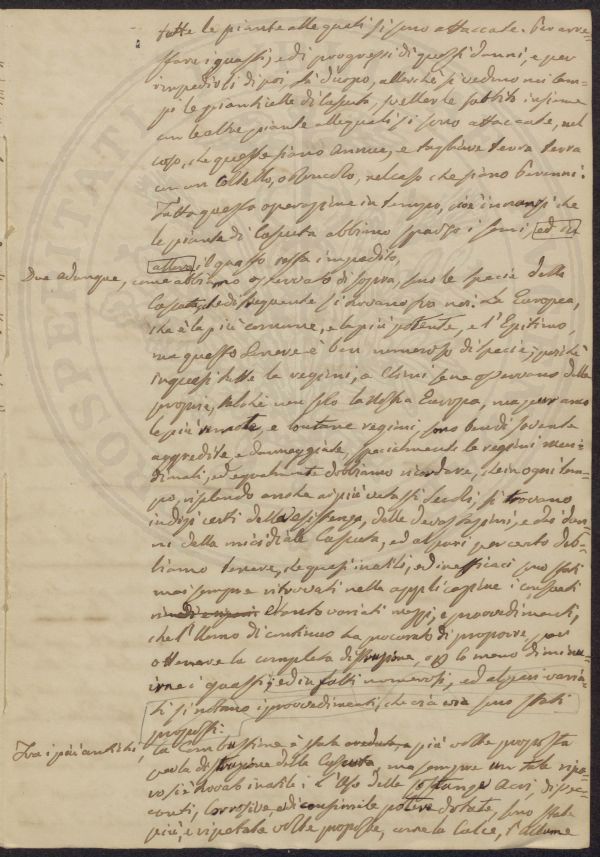 tutte le piante alle quali si sono attaccate. Per arre-
stare i guasti, ed i progressi di questi danni, e per
impedirli di poi, fà d'uopo, allorchè si vedono nei cam-
pi le pianticelle di Cascuta, svellerle subbito insieme
con le altre piante alle quali si sono attaccate, nel
caso, che queste siano Annue, e tagliare terra terra
con un Coltello, o Roncolo, nel caso che siano Perenni.
Fatta questa operazione in tempo, cioè innanzi che
le piante di Cascuta abbiano sparso i semi, ed in
allora il guasto resta impedito,
Due adunque, come abbiamo osservato di sopra, sono le specie della
Cascuta, che di frequente si trovano fra noi. La Europea,
che è la più comune, e la più potente, e l'Epitimo,
ma questo Genere è ben numeroso di specie; poichè
in quasi tutte le regioni, e Climi se ne osservano delle
proprie, talchè non solo la nostra Europa, ma pur anco
le più remote, e lontane regioni, sono ben di sovente
aggredite, e danneggiate, specialmente le regioni meri-
dionali, ed egualmente dobbiamo ricordare, che in ogni tem-
po, risalendo anche ai più vetusti secoli, si trovano
indizj certi dell'esistenza, delle devastazioni, e dei dan-
ni della micidiale Cascuta, ed al pari per certo dob-
biamo tenere, che quasi inutili, ed inefficaci sono stati
mai sempre ritrovati nella applicazione i consueti
e tanto variati mezzi, e provvedimenti,
che l'Uomo di continuo ha procurato di proporre, per
ottenere la completa distruzione, o lo meno diminu-
irne i guasti; ed infatti numerosi, ed al pari varia-
ti si notano i provvedimenti, che via via sono stati
proposti.
Fra i più antichi, la Combustione è stata creduta, e più volte proposta
per la distruzione della Cascuta, ma sempre un tale ripa-
ro si è trovato inutile: L'Uso delle sostanze Acri, dissec-
canti, Corrosive, e di consimile potere dotate, sono state
più, e ripetute volte proposte, come la Calce, l'Allume